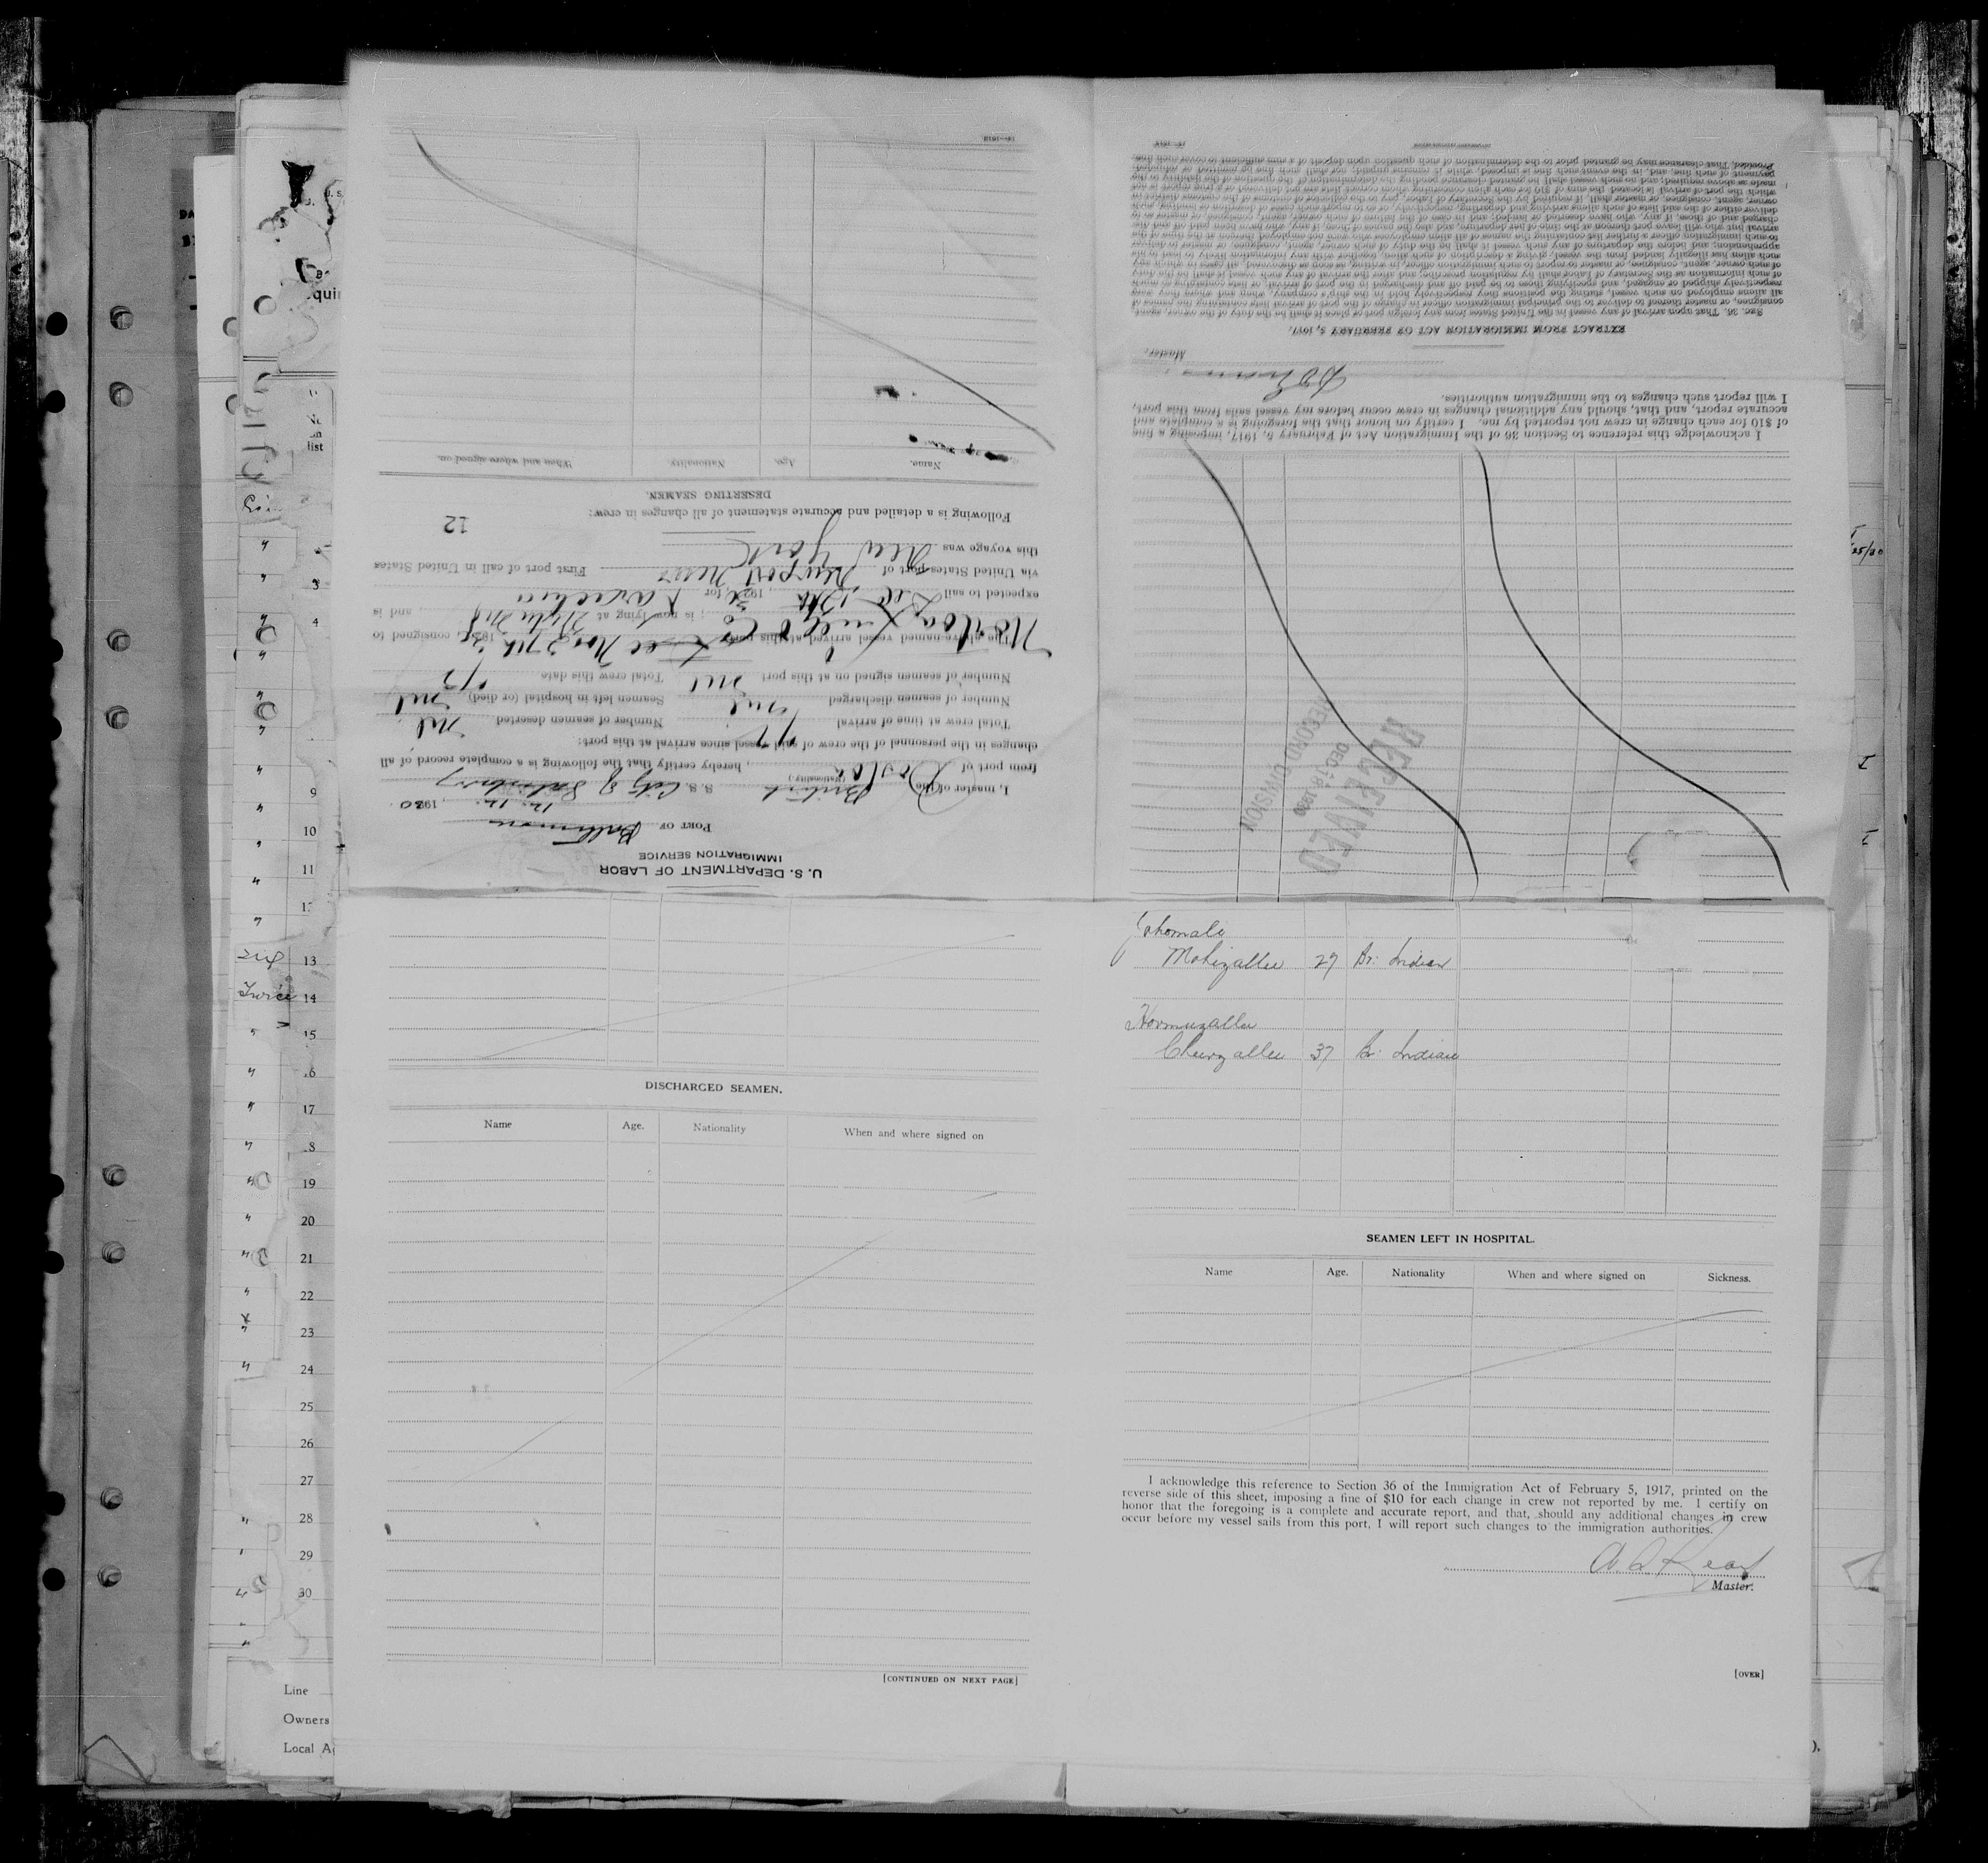 U. S. DEPARTMENT OF LABOR
IMMIGRATION SERVICE
PORT OF Baltimore
1920
I, master of the British S. S. City of Salisbury
(Nationality.)
from port of Boston, hereby certify that the following is a complete record of all
changes in the personnel of the crew of said vessel since arrival at this port:
Total crew at time of arrival Number of seamen deserted nil
Number of seamen discharged nil Seamen left in hospital (or died) nil
Number of seamen signed on at this port nil Total crew this date
The above-named vessel arrived at this port Nov 27th 1920, consigned to
Norton Co; is now lying at and is
expected to sail Dec 192 for
via United States port of Newport News First port of call in United States
this voyage was New York
Following is a detailed and accurate statement of all changes in crew:
12
DESERTING SEAMEN.
Name. Age. Nationality. When and where signed on.
16—1618
RECEIVED
DEC 18 1920
RECORD DIVISION
I acknowledge this reference to Section 36 of the Immigration Act of February 5, 1917, imposing a fine
of $10 for each change in crew not reported by me. I certify on honor that the foregoing is a complete and
accurate report, and that, should any additional changes in crew occur before my vessel sails from this port,
I will report such changes to the immigration authorities.
Master.
EXTRACT FROM IMMIGRATION ACT OF FEBRUARY 5, 1917.
SEC. 36. That upon arrival of any vessel in the United States from any foreign port or place it shall be the duty of the owner, agent,
consignee, or master thereof to deliver to the principal immigration officer in charge of the port of arrival lists containing the names of
all aliens employed on such vessel, stating the positions they respectively hold in the ship's company, when and where they were
respectively shipped or engaged, and specifying those to be paid off and discharged in the port of arrival; or lists containing so much
of such information as the Secretary of Labor shall by regulation prescribe; and after the arrival of any such vessel it shall be the duty
of such owner, agent, consignee, or master to report to such immigration officer, in writing, as soon as discovered, all cases in which any
such alien has illegally landed from the vessel, giving a description of such alien, together with any information likely to lead to his
apprehension; and before the departure of any such vessel it shall be the duty of such owner, agent, consignee, or master to deliver
to such immigration officer a further list containing the names of all alien employees who were not employed thereon at the time of the
arrival but who will leave port thereon at the time of her departure, and also the names of those, if any, who have been paid off and dis-
charged and of those, if any, who have deserted or landed; and in case of the failure of such owner, agent, consignee, or master so to
deliver either of the said lists of such aliens arriving and departing, respectively, or so to report such cases of desertion or landing, such
owner, agent, consignee, or master shall, if required by the Secretary of Labor, pay to the collector of customs of the customs district in
which the port of arrival is located the sum of $10 for each alien concerning whom correct lists are not delivered or a true report is not
made as above required; and no such vessel shall be granted clearance pending the determination of the question of the liability to the
payment of such fine, and, in the event such fine is imposed, while it remains unpaid; nor shall such fine be remitted or refunded:
Provided, That clearance may be granted prior to the determination of such question upon deposit of a sum sufficient to cover such fine.
DISCHARGED SEAMEN.
Name Age. Nationality When and where signed on
[CONTINUED ON NEXT PAGE]
Motizallee 29 Br: Indian
Hormuzallee
37 Br: Indian
SEAMEN LEFT IN HOSPITAL.
Name Age. Nationality When and where signed on Sickness.
I acknowledge this reference to Section 36 of the Immigration Act of February 5, 1917, printed on the
reverse side of this sheet, imposing a fine of $10 for each change in crew not reported by me. I certify on
honor that the foregoing is a complete and accurate report, and that, should any additional changes in crew
occur before my vessel sails from this port, I will report such changes to the immigration authorities.
Master.
[OVER]
list
3
4
9
10
11
13
Twice 14
15
17
19
20
21
22
23
24
25
26
27
28
29
30
Line
Owners
Local